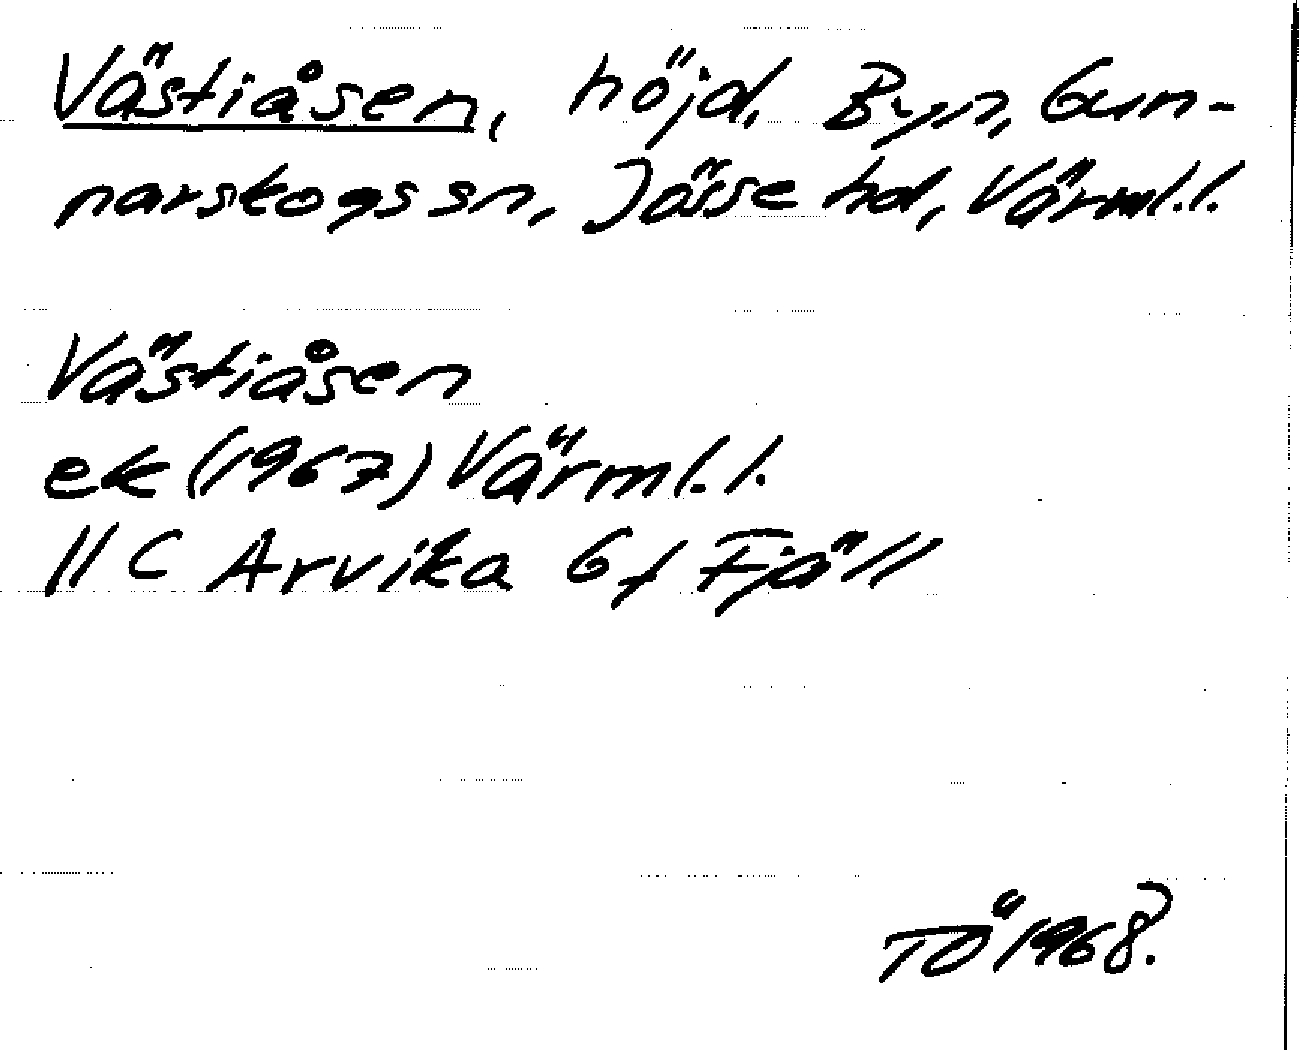 Västiåsen, höjd, Byn, Gun-
narskogs sn, Jösse hd, Värml.l.
Västiåsen
ek (1967) Värml.l.
11 C Arvika 6 f Fjäll
TÖ 1968.